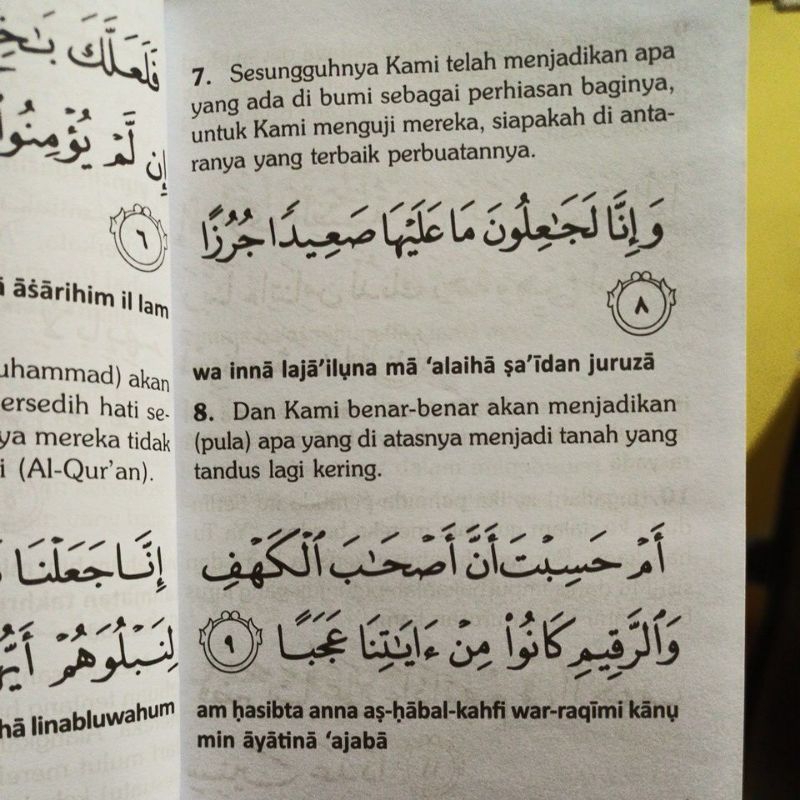 فَلَعَلَّكَ
إِن لَّمْ يُؤْمِنُوا۟
٦
āṡārihim il lam
uhammad) akan
ersedih hati se-
ya mereka tidak
i (Al-Qur’an).
إِنَّا جَعَلْنَا
لِنَبْلُوَهُمْ
hā linabluwahum
7. Sesungguhnya Kami telah menjadikan apa
yang ada di bumi sebagai perhiasan baginya,
untuk Kami menguji mereka, siapakah di anta-
ranya yang terbaik perbuatannya.
وَإِنَّا لَجَـٰعِلُونَ مَا عَلَيْهَا صَعِيدًا جُرُزًا
٨
wa innā lajā’ilụna mā ‘alaihā ṣa’īdan juruzā
8. Dan Kami benar-benar akan menjadikan
(pula) apa yang di atasnya menjadi tanah yang
tandus lagi kering.
أَمْ حَسِبْتَ أَنَّ أَصْحَـٰبَ ٱلْكَهْفِ
وَٱلرَّقِيمِ كَانُوا۟ مِنْ ءَايَـٰتِنَا عَجَبًا ٩
am ḥasibta anna aṣ-ḥābal-kahfi war-raqīmi kānụ
min āyātinā ‘ajabā